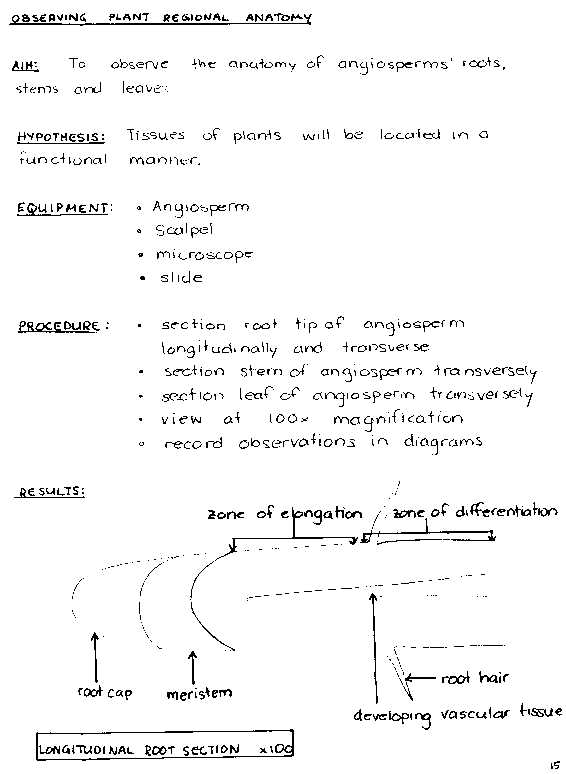 OBSERVING PLANT REGIONAL ANATOMY
AIM: To observe the anatomy of angiosperms' roots,
stems and leaves.
HYPOTHESIS: Tissues of plants will be located in a
functional manner.
EQUIPMENT: • Angiosperm
• Scalpel
• microscope
• slide
PROCEDURE: • section root tip of angiosperm
longitudinally and transverse
• section stem of angiosperm transversely
• section leaf of angiosperm transversely
• view at 100x magnification
• record observations in diagrams
RESULTS:
zone of elongation zone of differentiation
root cap meristem
root hair
developing vascular tissue
LONGITUDINAL ROOT SECTION x100
15